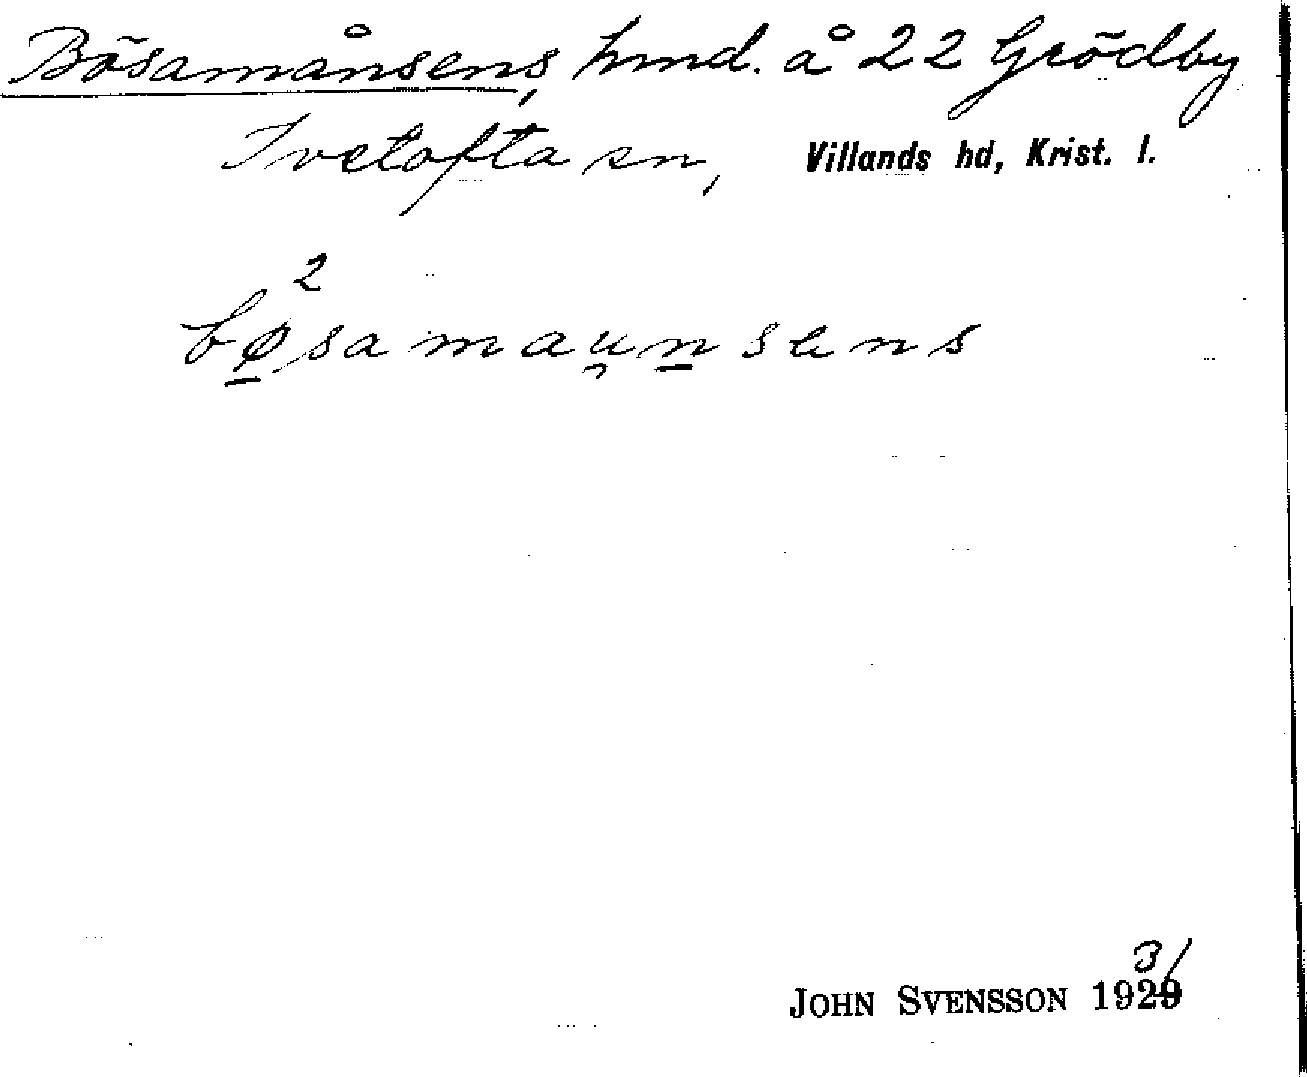 Bösamånsens, hmd. å 22 Grödby
Ivetofta sn, Villands hd, Krist. l.
2
bø̱samau̯n̠sens
3/
JOHN SVENSSON 1929